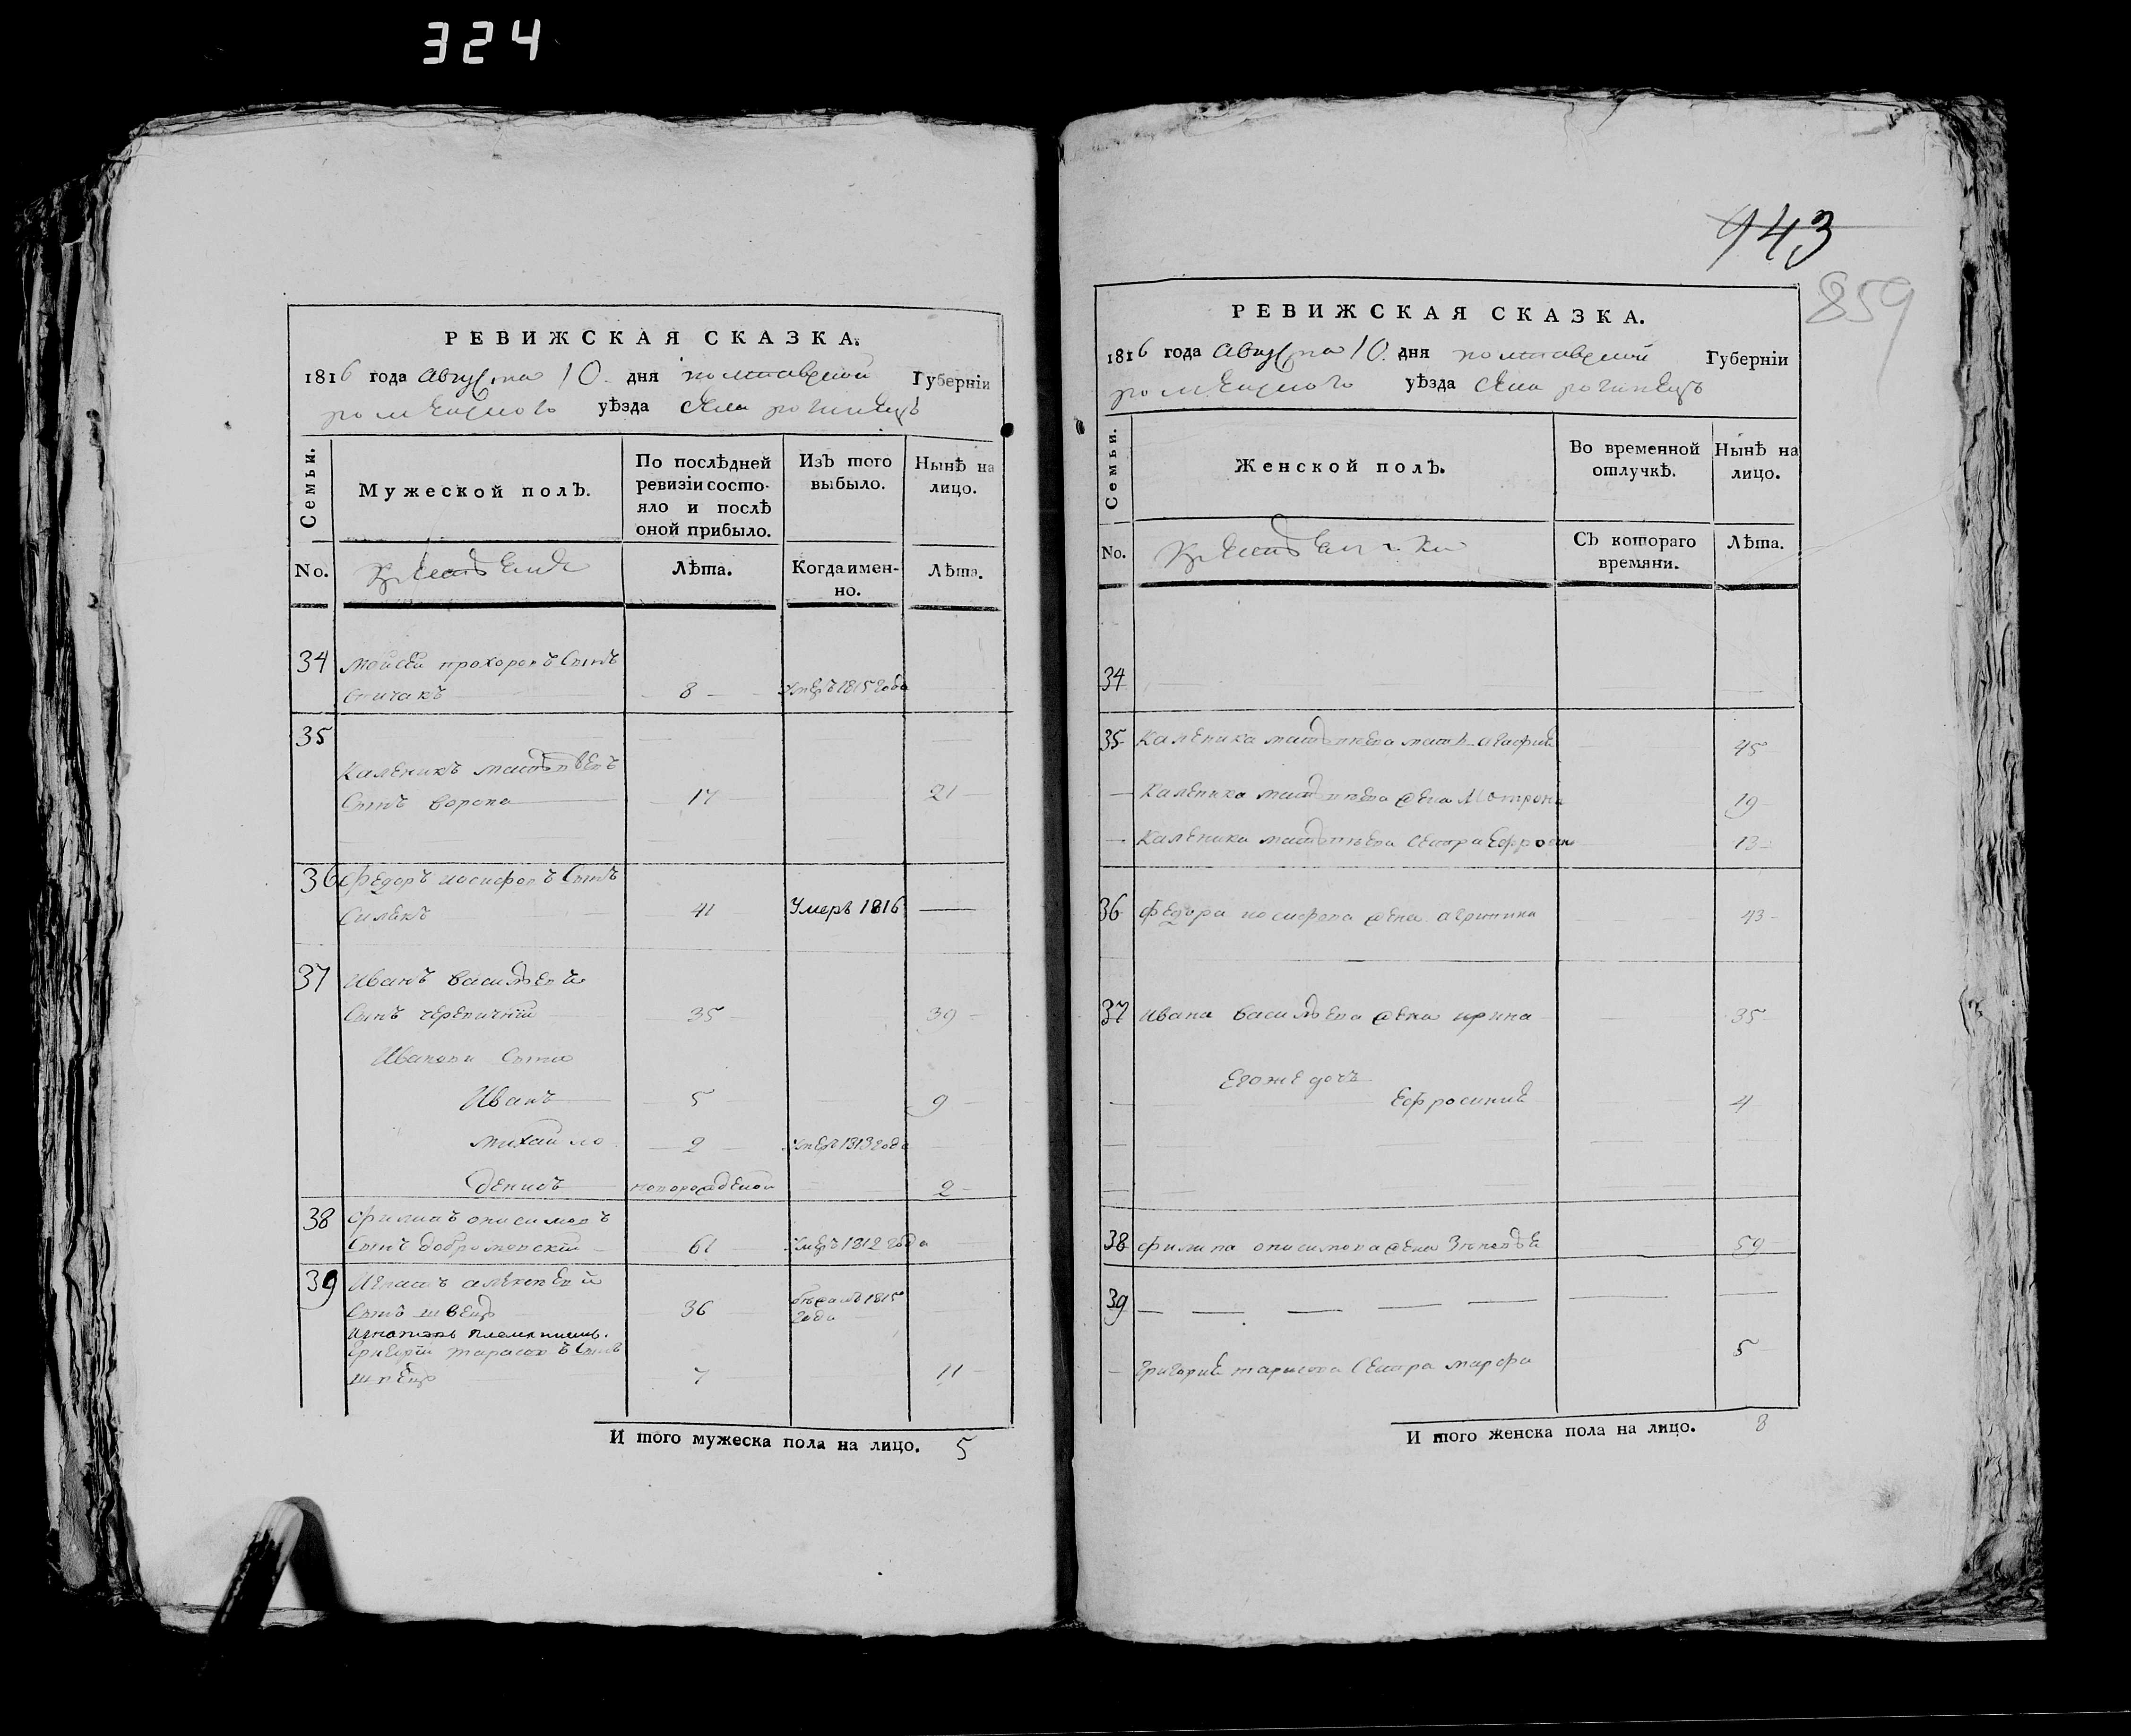 324
943
859
РЕВИЖСКАЯ СКАЗКА.
1816 года Августа 10 дня полтавской Губерніи
роменского уѣзда села рогинецъ
Семьи.
Мужеской полЪ.
По послѣдней ревизіи состо-
яло и послѣ
оной прибыло.
ИзЪ того
выбыло.
Нынѣ на
лицо.
No.
Крестьяне
Лѣта.
Когда имен-
но.
Лѣта.
34 Моисей прохоровъ Сынъ
Спичакъ 8 умеръ 1815 года
35
Каленикъ матвѣевъ
Сынъ ворона 17 21
36 Федоръ иосифовъ Сынъ
Силекъ 41 Умеръ 1816
37 Иванъ васильевъ
Сынъ черепичній 35 39
Ивановы Сыны
Иванъ 5 9
михайло 2 умеръ 1813 года
денисъ новорожденой 2
38 филипъ онисимовъ
Сынъ 61 умеръ 1812 года
39 Игнатъ
Сынъ швецъ 36 бѣжалъ 1815
года
Игнатовъ племянникъ
Григорій тарасовъ Сынъ
швецъ 7 11
И того мужеска пола на лицо. 5
РЕВИЖСКАЯ СКАЗКА.
1816 года Августа 10 дня полтавской Губерніи
роменского уѣзда села рогинецъ
Семьи.
Женской полЪ.
Во временной
отлучкѣ.
Нынѣ на
лицо.
No.
Крестьянки
СЪ котораго
времяни.
Лѣта.
34
35 Каленика матвѣева мать агафия 45
Каленика матвѣева жена Мотрона 19
Каленика матвѣева сестра Ефросина 13
36 Федора иосифова жена агрипина 43
37 Ивана васильева жена ирина 35
Егоже дочъ
Ефросиния 4
38 филипа онисимова жена Зѣновья 59
39
Григория тарасова Сестра марфа 5
И того женска пола на лицо. 8